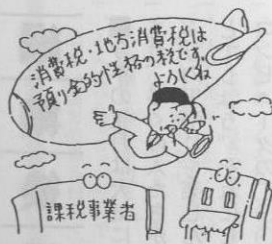 消費税・地方消費税は
預り金的性格の税です。
よろしくね
課税事業者